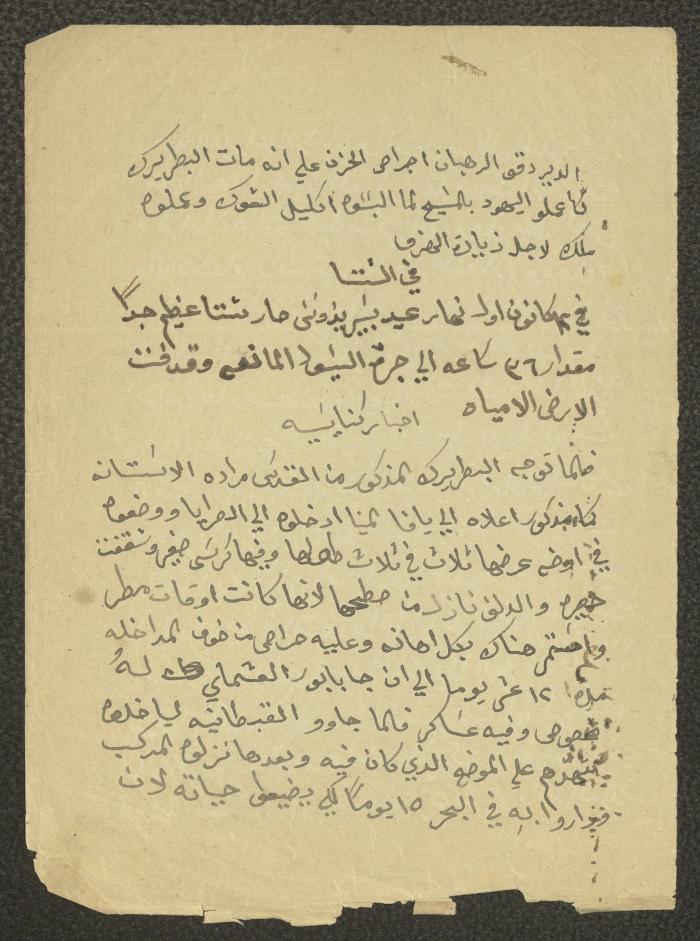 الدير دقو الرهبان اجراص الحزن علي انه مات البطريرك
كما عملو اليهود بالمسيح لما البسوه اكليل الشوك وعملوه
ملك لاجل زيادة الهزو
في الشتا
في كانون اول نهار عيد صار شتا عظيم جداً
مقدار ٣٦ ساعه الي جرة المانعه وقد فنت
الارض الامياه
اخبار كنايسيه
فلما توجه البطريرك المذكور من القدس مراده الاستانه
كما مذكور اعلاه الي يافا المينا ادخلوه الي الصرايا ووضعوه
في اوضه عرضها ثلاث في ثلاث طولها وفيها كرسي صغير وشقفة
حصيره والدلف نازل من صطحها لانها كانت اوقات مطر
واستمر هناك بكل اهانه وعليه حراص من خوف المداخله
مدة ١٢ عشر يوما الي ان جا بابور العشملي له
خصوصي وفيه عساكر فلما جاوو القبطانيه لياخدوه
علي الموضع الذي كان فيه وبعدها نزلوه المركب
وداروا به في البحر ١٥ يوماً لكي يضيعوا حياته لان